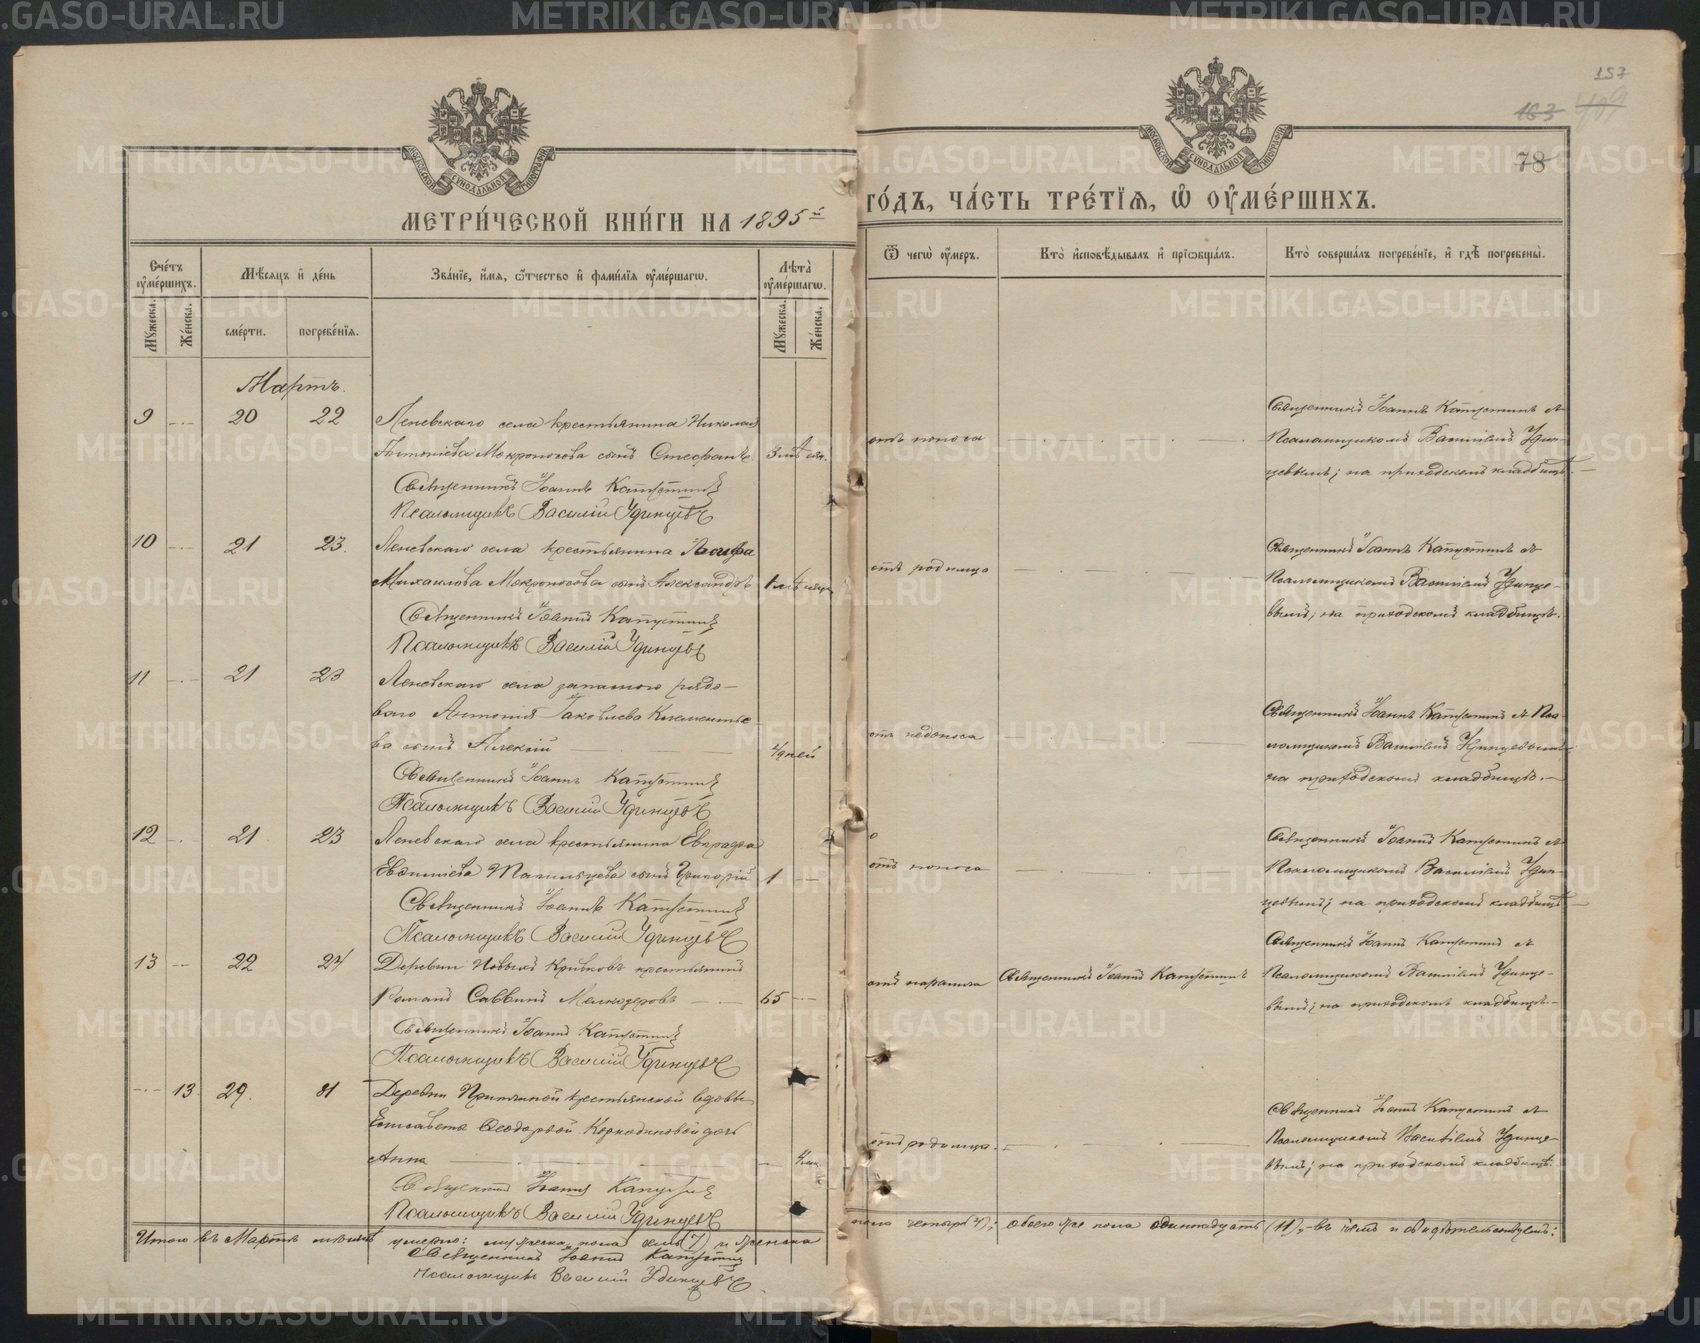 157
163
78
МЕТРИ́ЧЕСКОЙ КНИ́ГИ НА 1895й
ГО́ДЪ, ЧА́СТЬ ТРЕ́ТІѦ, Ѡ҆ ОУ҆МЕ́РШИХЪ.
Сче́тъ оу҆ме́ршихъ.
Мѣ́сяцъ и҆ де́нь
Зва́нїе, и҆́мя, ѻ҆́тчество и҆ фами́лїя оу҆ме́ршагѡ.
Лѣ́та оу҆ме́ршагѡ.
Ѿ чегѡ̀ оу҆́меръ.
Кто̀ и҆сповѣ́дывалъ и҆ прїѡбща́лъ.
Кто̀ соверша́лъ погребе́нїе, и҆ гдѣ̀ погребены̀.
Мꙋ́жеска.
Же́нска.
сме́рти.
погребе́нїя.
Мꙋ́жеска.
Же́нска.
Мартъ.
9 20 22 Леневскаго села крестьянина Николая
Антоніева Мокроносова сынъ Стефанъ.
Священникъ Іоаннъ Капустинъ
Псаломщикъ Василій Удинцевъ
отъ поноса
Священникъ Іоаннъ Капустинъ съ
Псаломщикомъ Василіемъ Удин-
цевымъ; на приходскомъ кладбищѣ.
10 21 23. Леневскаго села крестьянина
Михаилова Мокроносова сынъ Александръ
Священникъ Іоаннъ Капустинъ
Псаломщикъ Василій Удинцевъ
отъ родимца
Священникъ Іоаннъ Капустинъ съ
Псаломщикомъ Василіемъ Удинце-
вымъ; на приходскомъ кладбищѣ.
11 21 23 Леневскаго села запаснаго рядо-
ваго Антонія Іаковлева Клементье-
ва сынъ Алексій 4 дней
Священникъ Іоаннъ Капустинъ
Псаломщикъ Василій Удинцевъ
отъ недоноса
Священникъ Іоаннъ Капустинъ съ Пса-
ломщикомъ Василіемъ Удинцевымъ
на приходскомъ кладбищѣ.
12 21 23 Леневскаго села крестьянина Евграфа
сынъ Григорій 1
Священникъ Іоаннъ Капустинъ
Псаломщикъ Василій Удинцевъ
отъ поноса
Священникъ Іоаннъ Капустинъ съ
Псаломщикомъ Василіемъ Удин-
цевымъ; на приходскомъ кладбищѣ
13 22 24 Деревни Новыхъ Кривковъ крестьянинъ
Романъ Саввинъ 65
Священникъ Іоаннъ Капустинъ
Псаломщикъ Василій Удинцевъ
отъ паралича
Священникъ Іоаннъ Капустинъ
Священникъ Іоаннъ Капустинъ съ
Псаломщикомъ Василіемъ Удинце-
вымъ; на приходскомъ кладбищѣ.
13 29. 31 Деревни крестьянской вдовы
Елисаветы Ѳеодоровой дочь
Анна
Священникъ Іоаннъ Капустинъ
Псаломщикъ Василій Удинцевъ
отъ родимца.
Священникъ Іоаннъ Капустинъ съ
Псаломщикомъ Василіемъ Удинце-
вымъ; на приходскомъ кладбищѣ.
Итого въ Мартѣ мѣсяцѣ умерло: мужеска пола семь (7) и женска
пола четыре (4); обоего же пола одиннадцать (11), въ чемъ и свидѣтельствуемъ:
Священникъ Іоаннъ Капустинъ
Псаломщикъ Василій Удинцевъ
METRIKI.GASO-URAL.RU